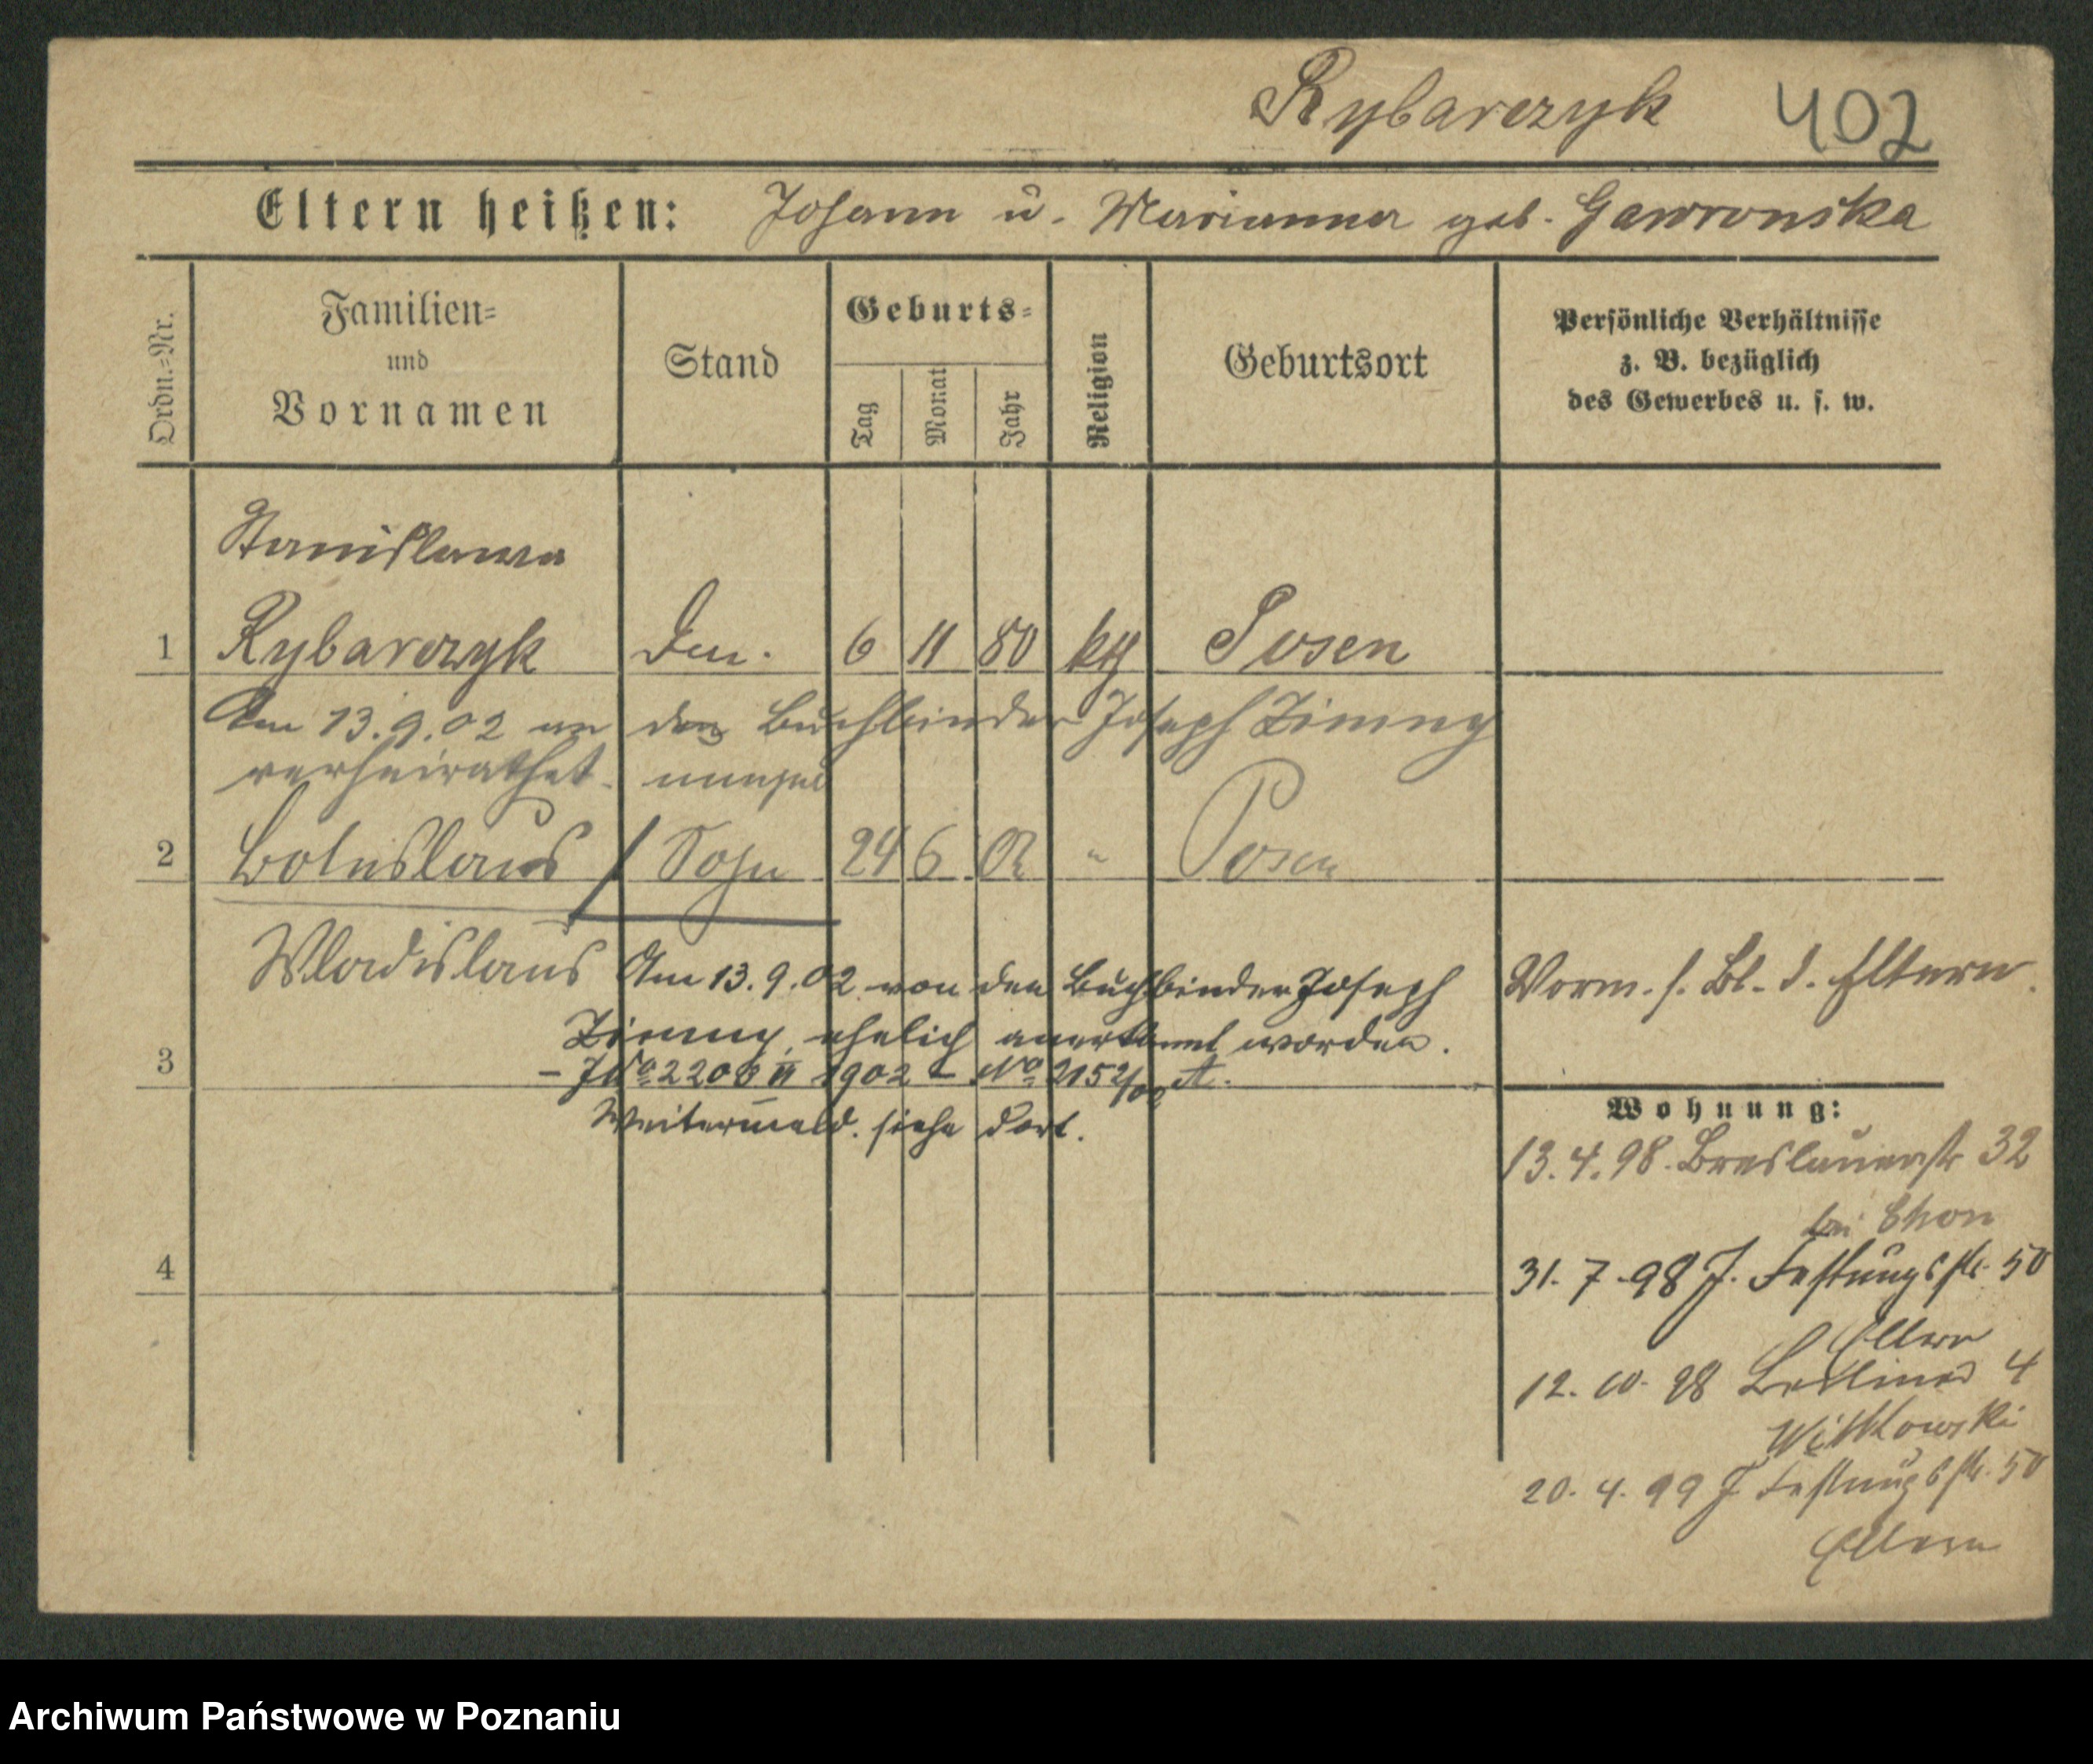 Rybarczyk 402
Eltern heißen: Johann u. Marianna geb. Gawronska
Ordn.=Nr.
Familien=
und
Vornamen
Stand
Geburts=
Tag
Monat
Jahr
Religion
Geburtsort
Persönliche Verhältnisse
z. B. bezüglich
des Gewerbes u. s. w.
Stanislawa
1 Rybarczyk 6 11 80 kth Posen
Am 13.9.02 an den Buchbinder Joseph Zimny
verheirathet.
2 Boleslaus / Sohn 24 6 02 " Posen
Wladislaus Am 13.9.02 von den Buchbinder Joseph
Vorm. s. Bl. d. Eltern.
Zimny, ehelich anerkannt worden.
3 - J No 2206 II 1902 - No 2152/02 A.
Weitermeld. siehe dort.
4
Wohnung:
13.4.98. Breslauerstr 32
bei
31. 7. 98 J. Festungsstr. 50
Eltern
12. 10. 98 Berliner 4
Witkowski
20. 4. 99 J. Festungsstr. 50
Eltern
Archiwum Państwowe w Poznaniu